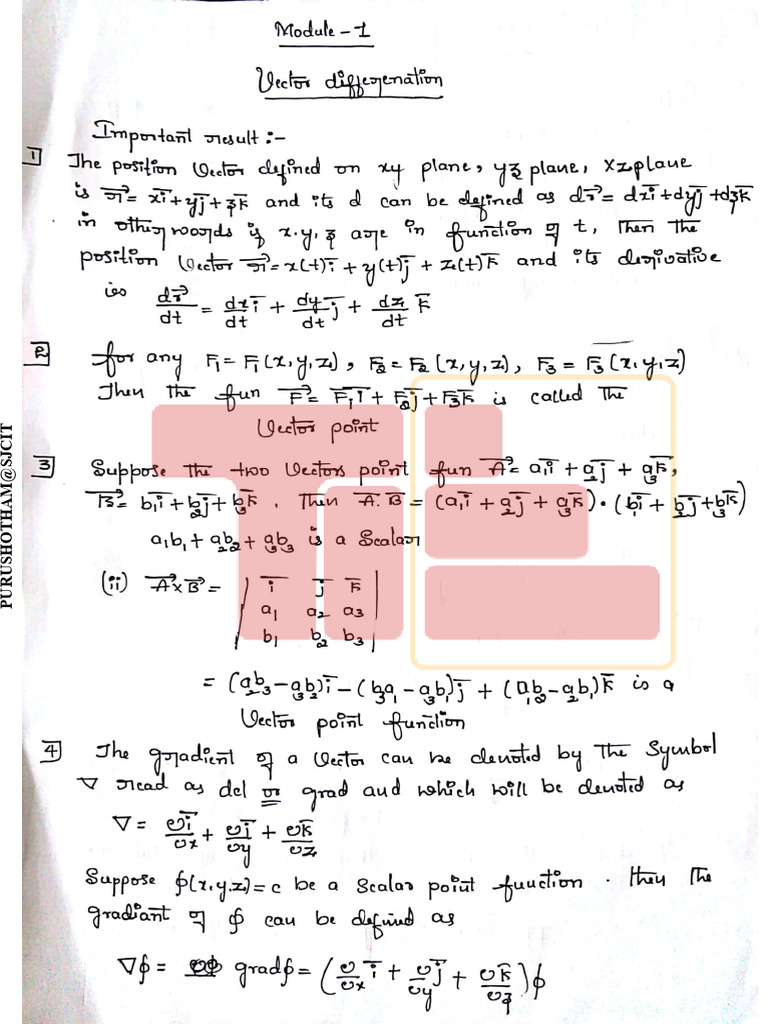 Module - 1
Vector differenation
Important result :-
1 The position Vector defined on xy plane, yz plane, xz plane
is r⃗ = xi̅ + yj̅ + zk̅ and its d can be defined as dr⃗ = dxi̅ + dyj̅ + dzk̅
in other words if x, y, z are in function of t, Then the
position Vector r⃗ = x(t)i̅ + y(t)j̅ + z(t)k̅ and its derivative
is dr⃗/dt = dx/dt i̅ + dy/dt j̅ + dz/dt k̅
2 for any F₁ = F₁(x, y, z), F₂ = F₂(x, y, z), F₃ = F₃(x, y, z)
Then the fun F⃗ = F₁i̅ + F₂j̅ + F₃k̅ is called the
Vector point
3 Suppose the two Vectors point fun A⃗ = a₁i̅ + a₂j̅ + a₃k̅,
B⃗ = b₁i̅ + b₂j̅ + b₃k̅. Then A⃗.B⃗ = (a₁i̅ + a₂j̅ + a₃k̅) · (b₁i̅ + b₂j̅ + b₃k̅)
a₁b₁ + a₂b₂ + a₃b₃ is a Scalar
(ii) A⃗ × B⃗ = | i̅ j̅ k̅
a₁ a₂ a₃
b₁ b₂ b₃ |
= (a₂b₃ - a₃b₂)i̅ - (b₃a₁ - a₃b₁)j̅ + (a₁b₂ - a₂b₁)k̅ is a
Vector point function
4 The gradient of a Vector can be denoted by the Symbol
∇ read as del or grad and which will be denoted as
∇ = ∂i̅/∂x + ∂j̅/∂y + ∂k̅/∂z
Suppose ϕ(x, y, z) = c be a Scalar point function. Then The
gradiant of ϕ can be defined as
∇ϕ = gradϕ = (∂/∂x i̅ + ∂j̅/∂y + ∂k̅/∂z)ϕ
PURUSHOTHAM@SJCIT